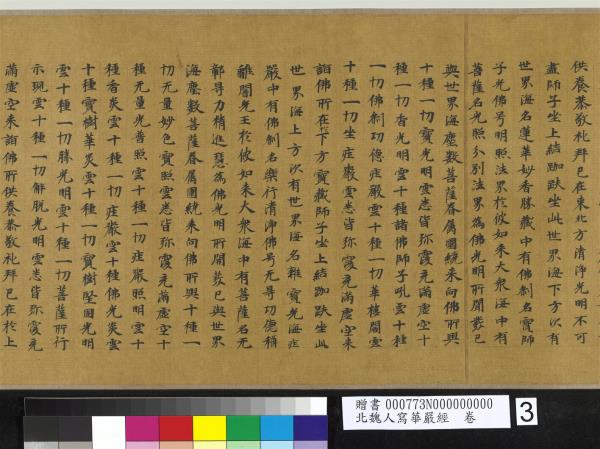 供養恭敬礼拜已在東北方清淨光明不可
盡師子坐上結跏趺坐此世界海下方次有
世界海名蓮華妙香勝藏中有佛刹名寶師
子光佛号明照法界於彼如来大衆海中有
菩薩名光照分別法界為佛光明所開發已
與世界海塵數菩薩眷属圍繞来向佛所興
十種一切寶光明雲悉皆弥覆充滿虚空十
種一切香光明雲十種諸佛師子吼雲十種
一切佛刹功德庄嚴雲十種一切華樓閣雲
十種一切坐庄嚴雲悉皆弥覆充滿虚空来
詣佛所在下方寶藏師子坐上結跏趺坐此
世界海上方次有世界海名雜寶光海庄
嚴中有佛刹名樂行清淨佛号无㝵功德稱
離闇光王於彼如来大衆海中有菩薩名无
鄣㝵力精進慧為佛光明所開發已與世界
海塵數菩薩眷属圍繞来向佛所興十種一
切无量妙色寶照雲悉皆弥覆充滿虚空十
種无量光普照雲十種一切庄嚴照明雲十
種香炎雲十種一切庄嚴雲十種佛光炎雲
十種寶樹華炎雲十種一切寶樹堅固光明
雲十種一切勝光明雲十種一切菩薩所行
示現雲十種一切解脫光明雲悉皆弥覆充
滿虚空来詣佛所供養恭敬礼拜已在於上
贈書 000773N000000000
北魏人寫華嚴經 卷
3